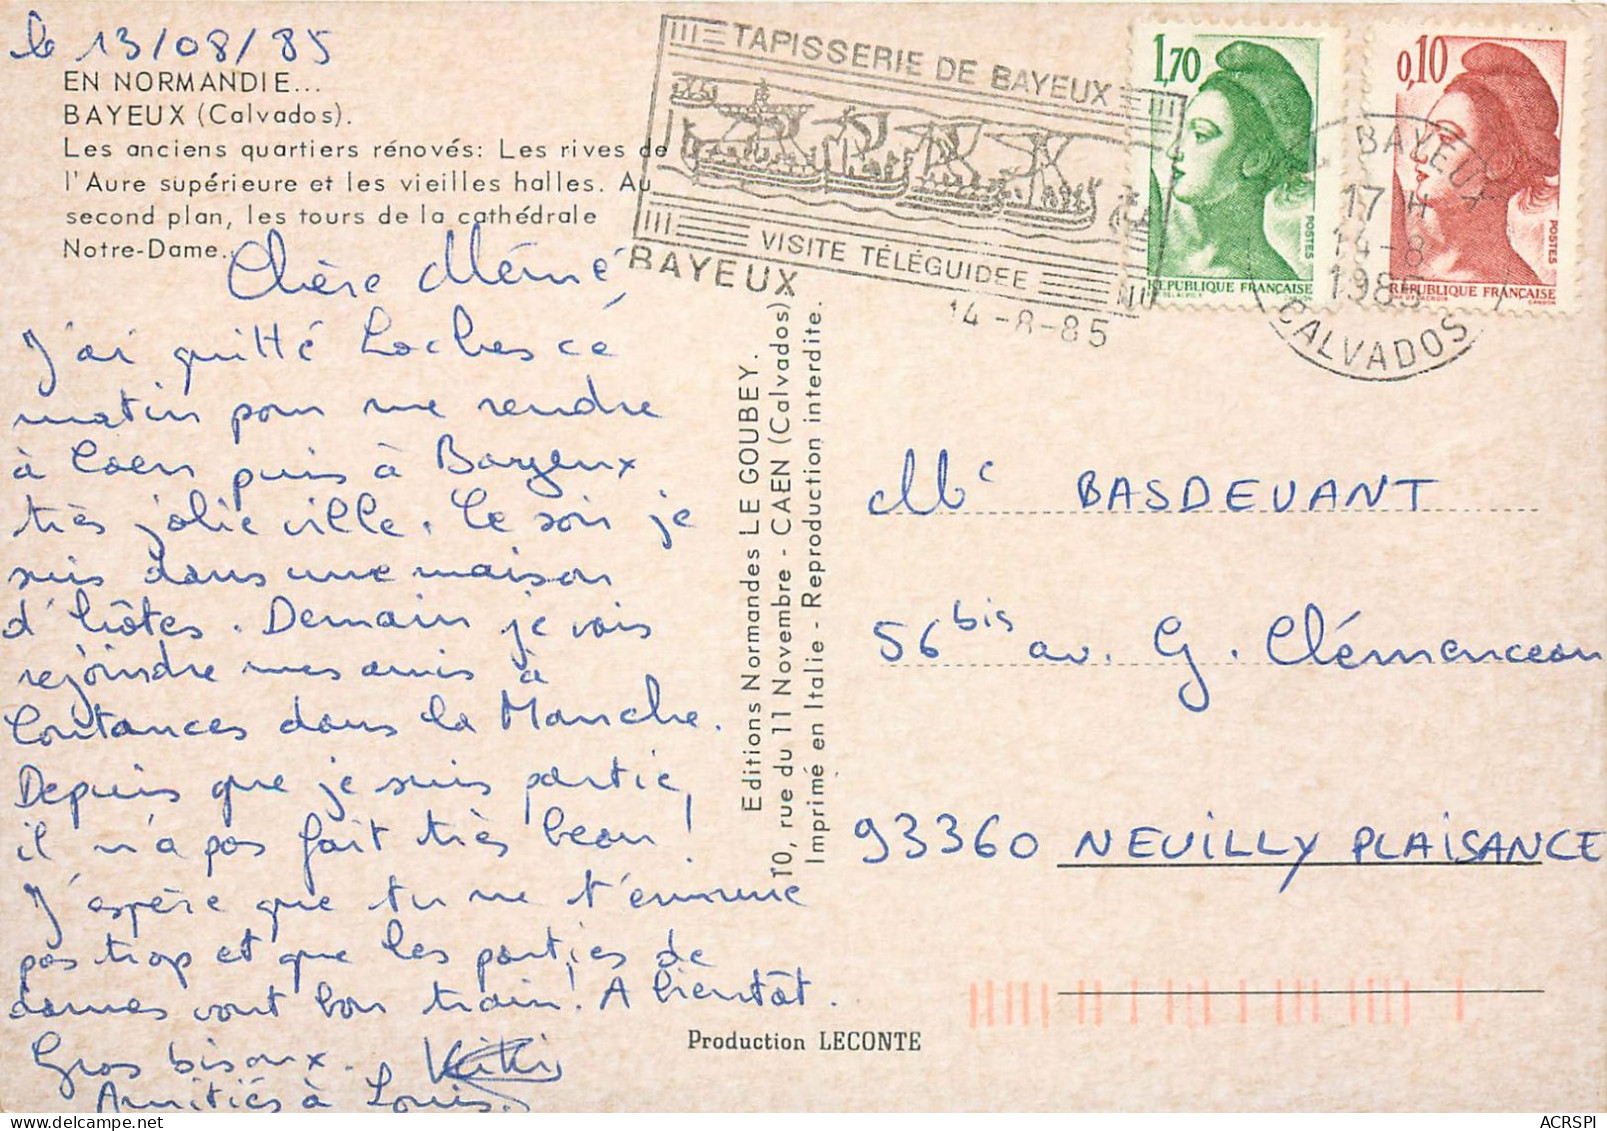 le 13/08/85
EN NORMANDIE...
BAYEUX (Calvados).
Les anciens quartiers rénovés: Les rives de
l'Aure supérieure et les vieilles halles. Au
second plan, les tours de la cathédrale
Notre-Dame.
Chère Mémé
J'ai quitté Loches ce
matin pour me rendre
à Caen puis à Bayeux
très jolie ville. Ce soir je
suis dans une maison
d'hôtes. Demain je vais
rejoindre mes amis à
Coutances dans la Manche.
Depuis que je suis partie,
il n'a pas fait très beau!
J'espère que tu ne t'ennuie
pas trop et que les parties de
dames vont bon train! A bientôt.
Gros bisoux. Kitti
Amitiés à Louis.
TAPISSERIE DE BAYEUX
VISITE TÉLÉGUIDEE
BAYEUX
14-8-85
1,70
POSTES
RÉPUBLIQUE FRANÇAISE
0,10
POSTES
RÉPUBLIQUE FRANÇAISE
BAYEUX
17 H
14-8
1985
CALVADOS
Editions Normandes LE GOUBEY.
10, rue du 11 Novembre - CAEN (Calvados)
Imprimé en Italie - Reproduction interdite.
Me BASDEVANT
56 bis av. G. Clémenceau
93360 NEUILLY PLAISANCE
Production LECONTE
ACRSPI